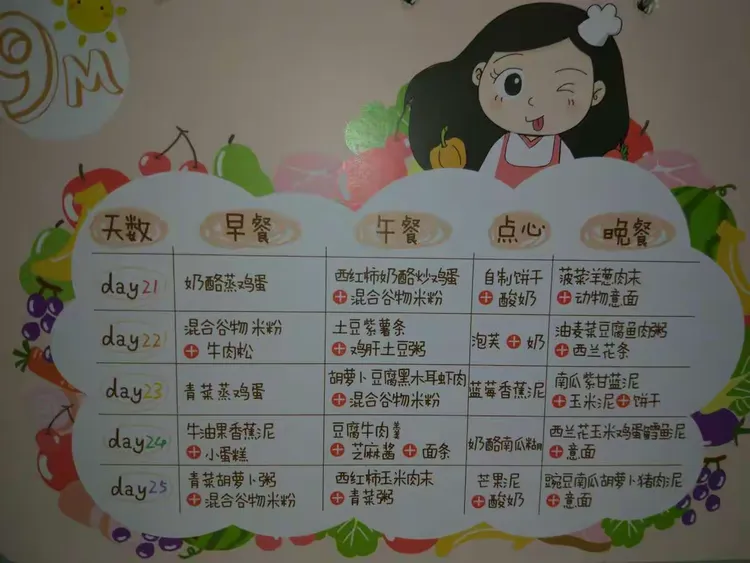 9M
天数 早餐 午餐 点心 晚餐
day21 奶酪蒸鸡蛋 西红柿奶酪炒鸡蛋 + 混合谷物米粉 自制饼干 + 酸奶 菠菜洋葱肉末 + 动物意面
day22 混合谷物米粉 + 牛肉松 土豆紫薯条 + 鸡肝土豆粥 泡芙 + 奶 油麦菜豆腐鱼肉粥 + 西兰花条
day23 青菜蒸鸡蛋 胡萝卜豆腐黑木耳虾肉 + 混合谷物米粉 蓝莓香蕉泥 南瓜紫甘蓝泥 + 玉米泥 + 饼干
day24 牛油果香蕉泥 + 小蛋糕 豆腐牛肉羹 + 芝麻酱 + 面条 奶酪南瓜糊 西兰花玉米鸡蛋鳕鱼泥 + 意面
day25 青菜胡萝卜粥 + 混合谷物米粉 西红柿玉米肉末 + 青菜粥 芒果泥 + 酸奶 豌豆南瓜胡萝卜猪肉泥 + 意面